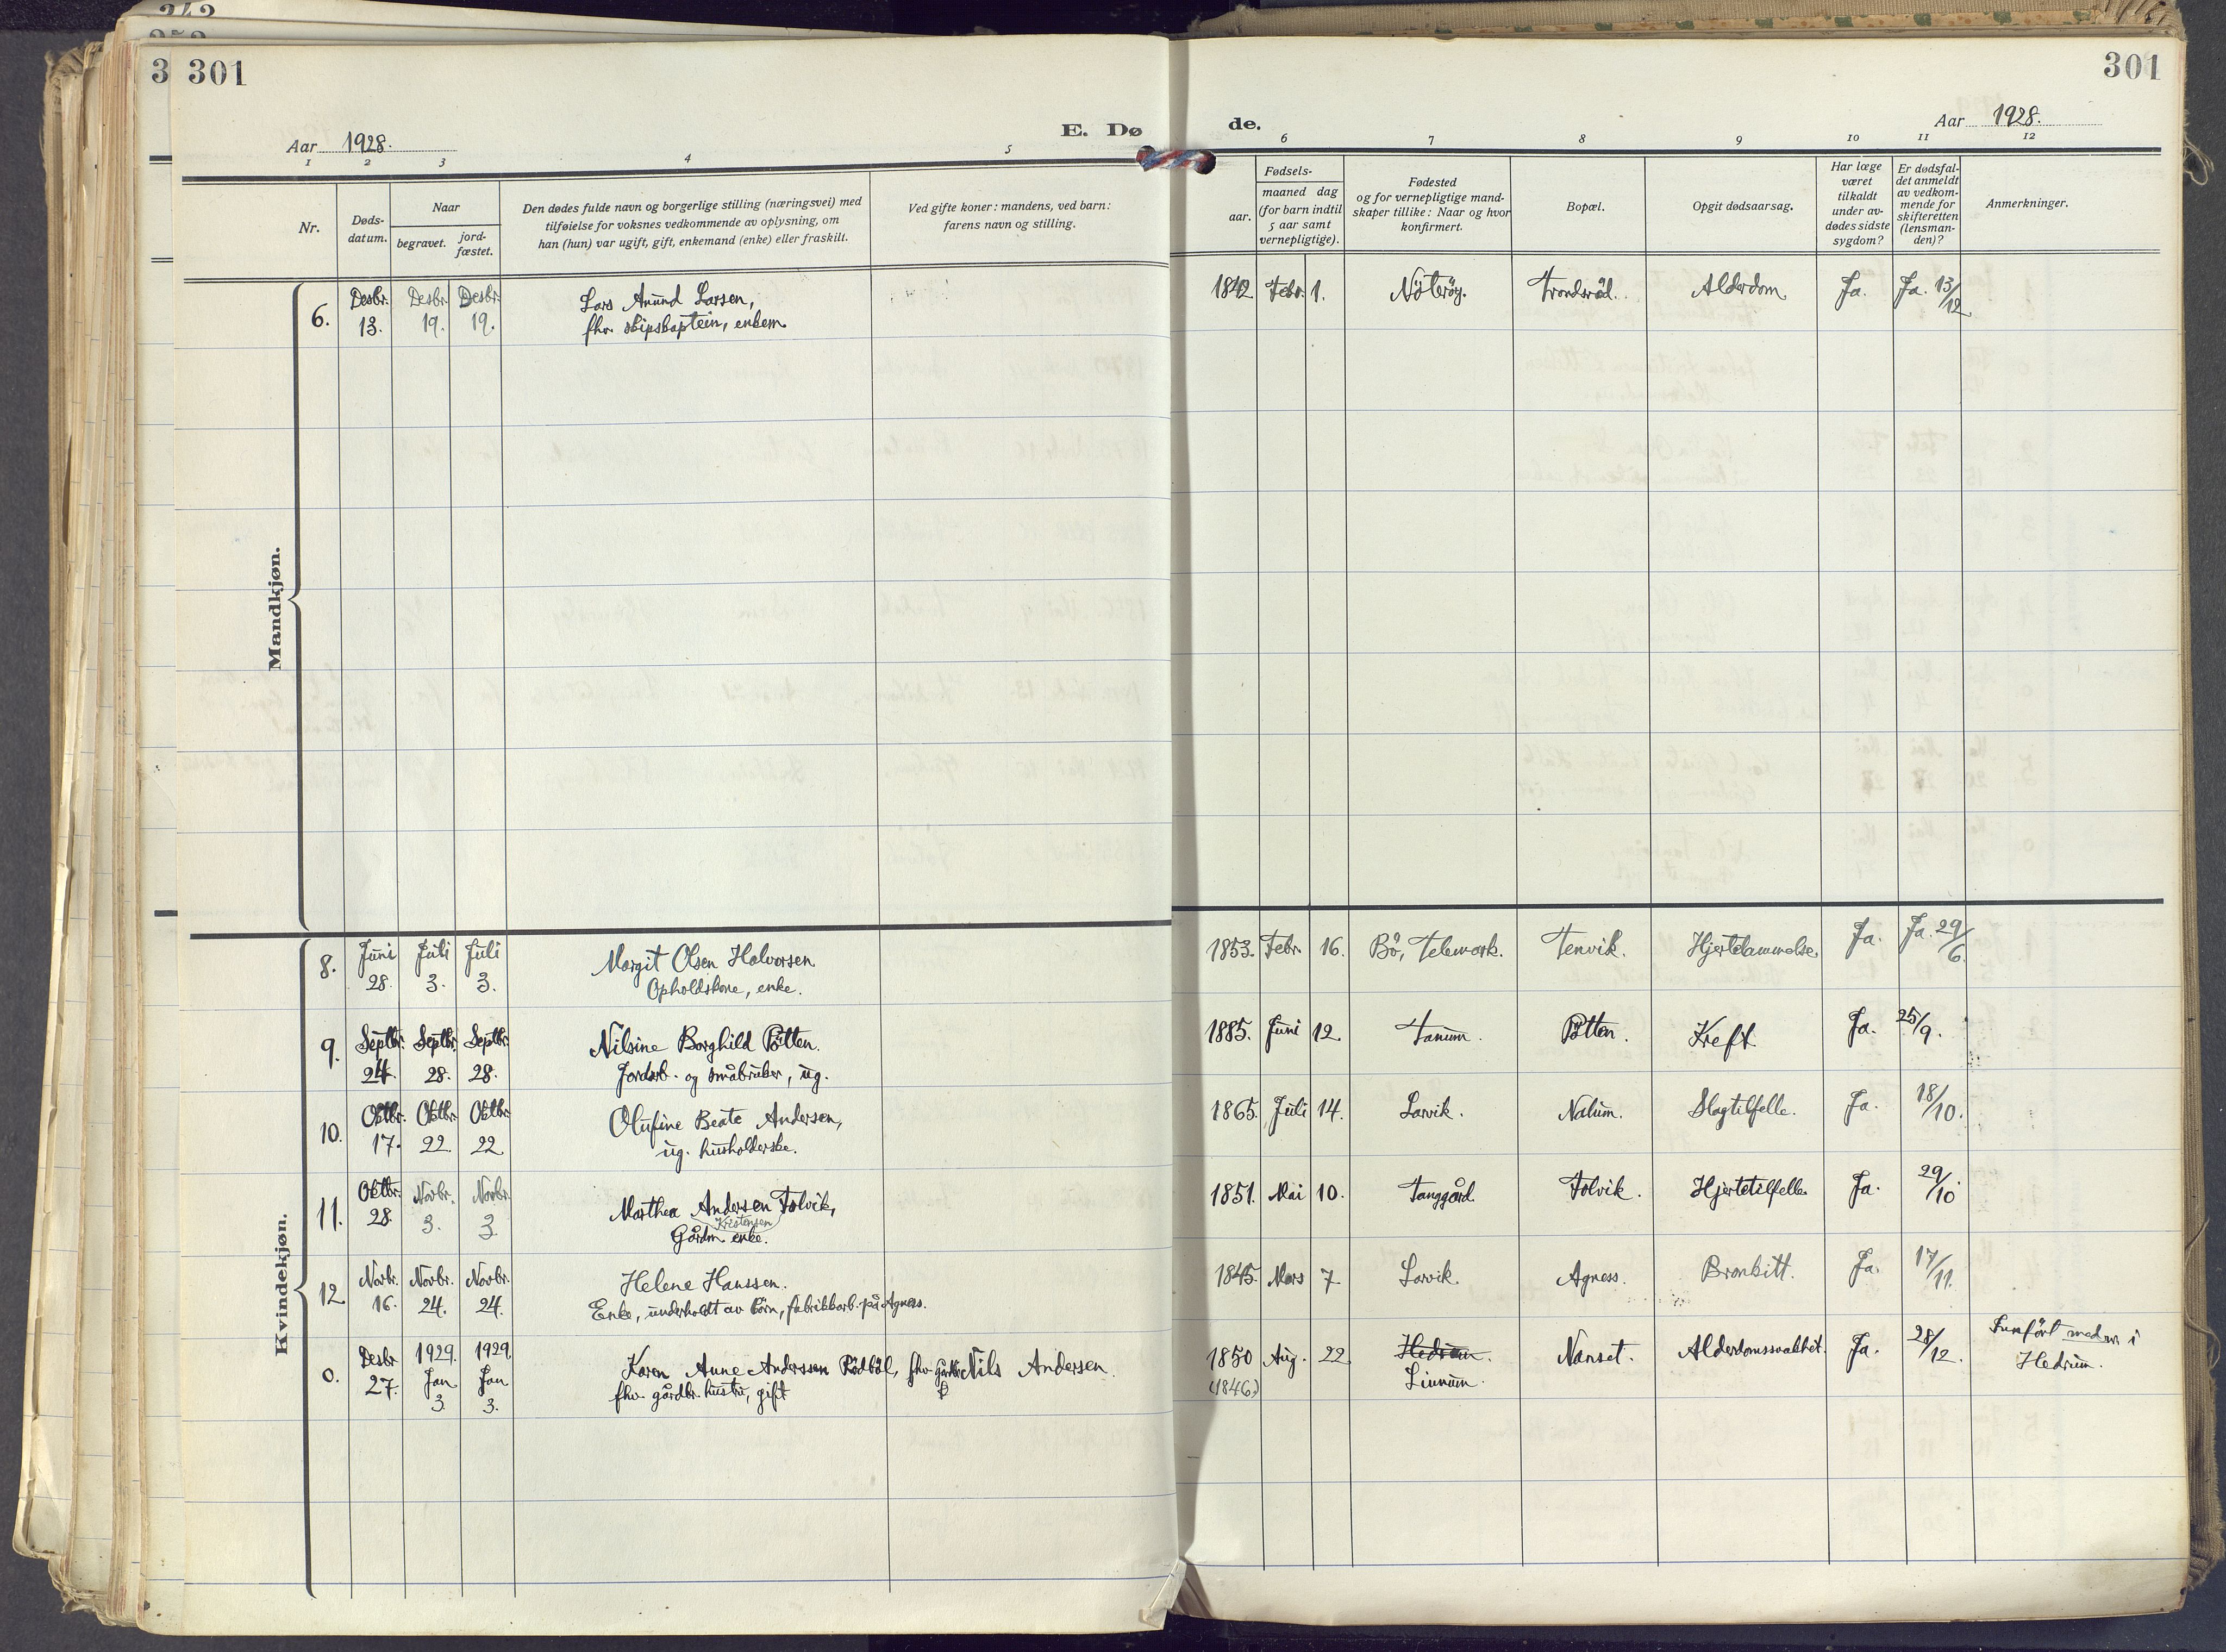 342
3
301
301
E. Døde.
Aar 1928.
Aar 1928.
1 2 3 4 5 6 7 8 9 10 11 12
Nr.
Døds-
datum.
Naar
begravet.
jord-
fæstet.
Den dødes fulde navn og borgerlige stilling (næringsvei) med
tilføielse for voksnes vedkommende av oplysning, om
han (hun) var ugift, gift, enkemand (enke) eller fraskilt.
Ved gifte koner: mandens, ved barn:
farens navn og stilling.
Fødsels-
aar.
maaned dag
(for barn indtil
5 aar samt
vernepligtige).
Fødested
og for vernepligtige mand-
skaper tillike: Naar og hvor
konfirmert.
Bopæl.
Opgit dødsaarsag.
Har læge
været
tilkaldt
under av-
dødes sidste
sygdom?
Er dødsfal-
det anmeldt
av vedkom-
mende for
skifteretten
(lensman-
den)?
Anmerkninger.
Mandkjøn.
6. Desbr. 13. Desbr. 19. Desbr. 19. Lars Anund Larsen, 1842 Febr. 1. Nöteröy. Trondsröd. Alderdom. Ja. Ja. 13/12
fhv. skipskaptein, enkem.
Kvindekjøn.
8. Juni 28. Juli 3. Juli 3. Margit Olsen Halvorsen 1853. Febr. 16. Bö, Telemark. Tenvik. Hjertelammelse. Ja. Ja. 29/6.
Opholdskone, enke.
9. Septbr. 24. Septbr. 28. Septbr. 28. Nilsine Borghild Pötten. 1885. Juni 12. Tanum. Pötten. Kreft. Ja. 25/9.
Jordarb. og småbruker, ug.
10. Oktbr. 17. Oktbr. 22. Oktbr. 22. Olufine Beate Andersen, 1865. Juli 14. Larvik. Nalum. Slagtilfelle. Ja. 18/10.
ug. husholderske.
11. Oktbr. 28. Novbr. 3. Novbr. 3. Marthea Andersen Tolvik, 1851. Mai 10. Tanggård Tolvik. Hjertetilfelle. Ja. 29/10
Kristensen
Gårdm. enke.
12. Novbr. 16. Novbr. 24. Novbr. 24. Helene Hanssen. 1845. Mars 7. Larvik. Agness. Bronkitt. Ja. 17/11.
Enke, underholdt av börn, fabrikkarb. på Agness.
0. Desbr. 27. 1929. Jan 3. 1929. Jan 3. Karen Anne Anderssen Rödböl, fhv. gårdbr. Nils Andersen. 1850 Aug. 22. Hedrum. Nanset. Alderdomssvakhet. Ja. 28/12. Innfört med nr. i
fhv. gårdbr. hustru, gift (1846) Linnum. Hedrum.